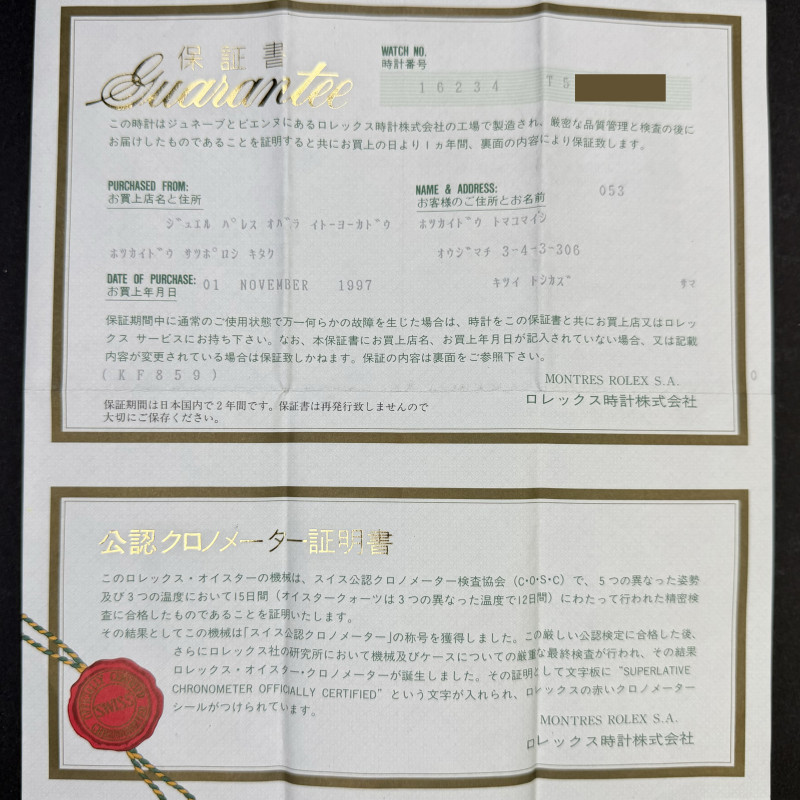 保証書
Guarantee
WATCH NO.
時計番号
16234 T5
この時計はジュネーブとビエンヌにあるロレックス時計株式会社の工場で製造され、厳密な品質管理と検査の後に
お届けしたものであることを証明すると共にお買上の日より1ヵ年間、裏面の内容により保証致します。
PURCHASED FROM:
お買上店名と住所
ジュエル パレス オバラ イトーヨーカドウ
ホツカイドウ サツポロシ キタク
NAME & ADDRESS: 053
お客様のご住所とお名前
ホツカイドウ トマコマイシ
オウジマチ 3-4-3-306
DATE OF PURCHASE: 01 NOVEMBER 1997
お買上年月日
キサイ トシカズ サマ
保証期間中に通常のご使用状態で万一何らかの故障を生じた場合は、時計をこの保証書と共にお買上店又はロレッ
クス サービスにお持ち下さい。なお、本保証書にお買上店名、お買上年月日が記入されていない場合、又は記載
内容が変更されている場合は保証致しかねます。保証の内容は裏面をご参照下さい。
(KF859)
MONTRES ROLEX S.A.
ロレックス時計株式会社
保証期間は日本国内で2年間です。保証書は再発行致しませんので
大切にご保存ください。
公認クロノメーター証明書
このロレックス・オイスターの機械は、スイス公認クロノメーター検査協会 (C・O・S・C) で、5つの異なった姿勢
及び3つの温度において15日間 (オイスタークォーツは3つの異なった温度で12日間) にわたって行われた精密検
査に合格したものであることを証明いたします。
その結果としてこの機械は「スイス公認クロノメーター」の称号を獲得しました。この厳しい公認検定に合格した後、
さらにロレックス社の研究所において機械及びケースについての厳重な最終検査が行われ、その結果
ロレックス・オイスター・クロノメーターが誕生しました。その証明として文字板に "SUPERLATIVE
CHRONOMETER OFFICIALLY CERTIFIED" という文字が入れられ、ロレックスの赤いクロノメーター
シールがつけられています。
SWISS
MONTRES ROLEX S.A.
ロレックス時計株式会社